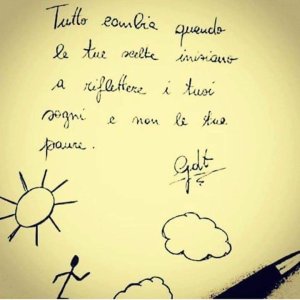 Tutto cambia quando
le tue scelte iniziano
a riflettere i tuoi
sogni e non le tue
paure.
Gdt